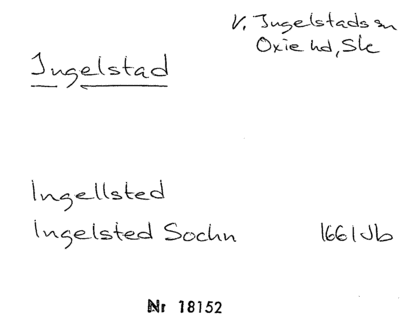 V. Ingelstads sn
Oxie hd, Sk
Ingelstad
Ingellsted
Ingelsted Sochn 1661 Jb
Nr 18152